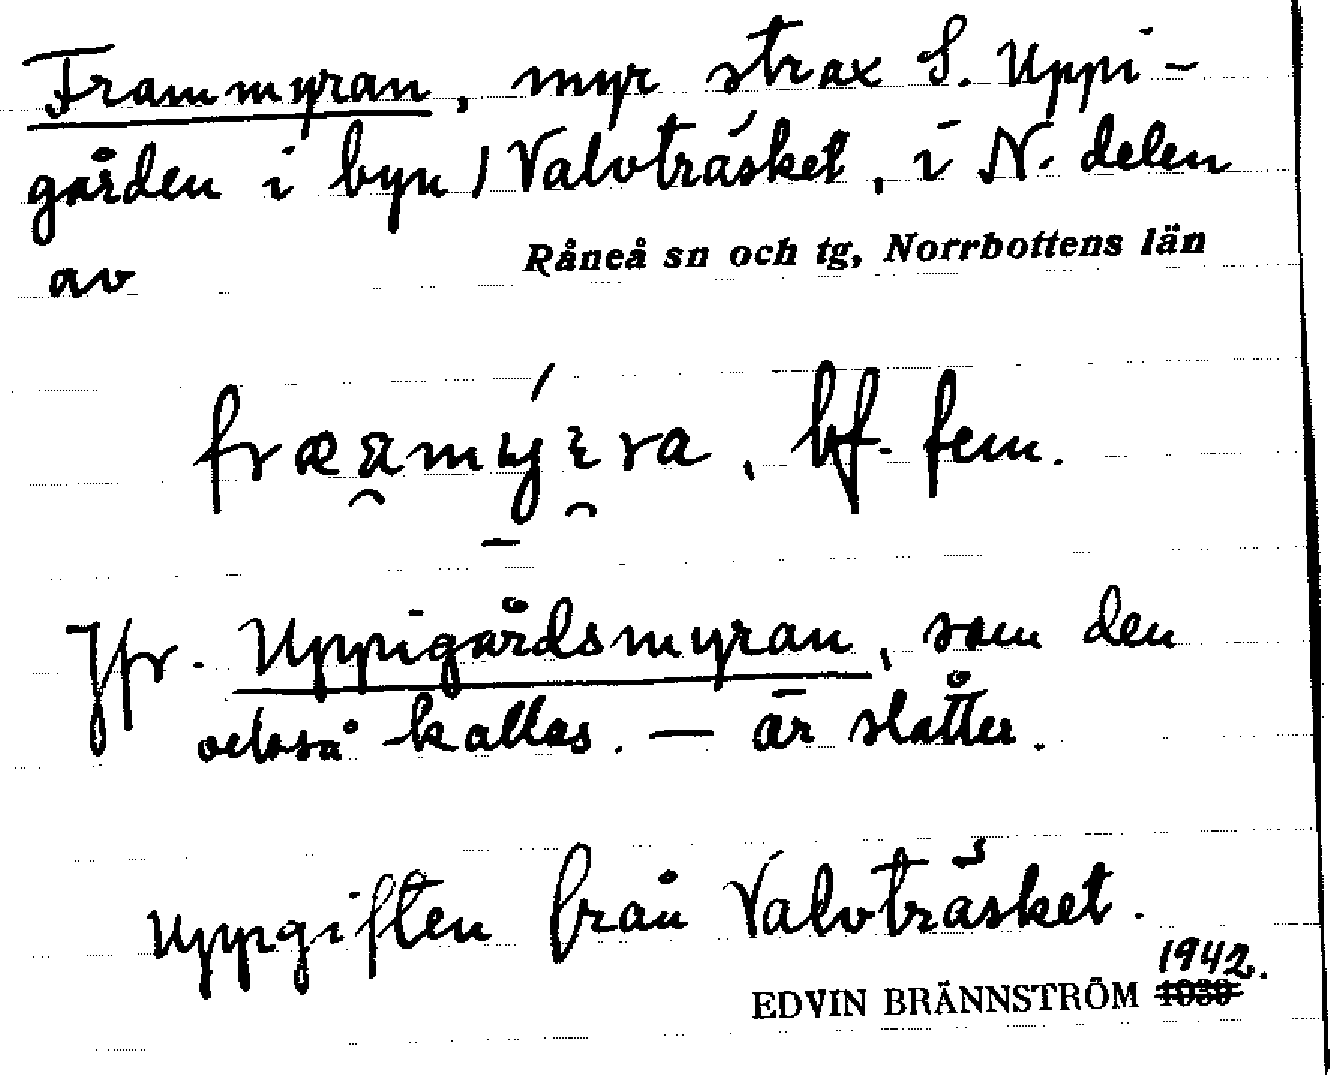 Frammyran, myr strax S. Uppi-
gården i byn / Valvträsket, i N. delen
av Råneå sn och tg, Norrbottens län
bf. fem.
Jfr. Uppigårdsmyran, som den
också kallas. — är slåtter.
Uppgiften från Valvträsket.
1942.
EDVIN BRÄNNSTRÖM 1939